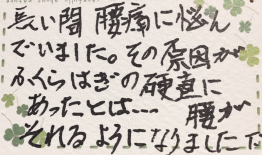 長い間 腰痛に悩ん
でいました。その原因が
ふくらはぎの硬直に
あったとは…… 腰が
それるようになりました